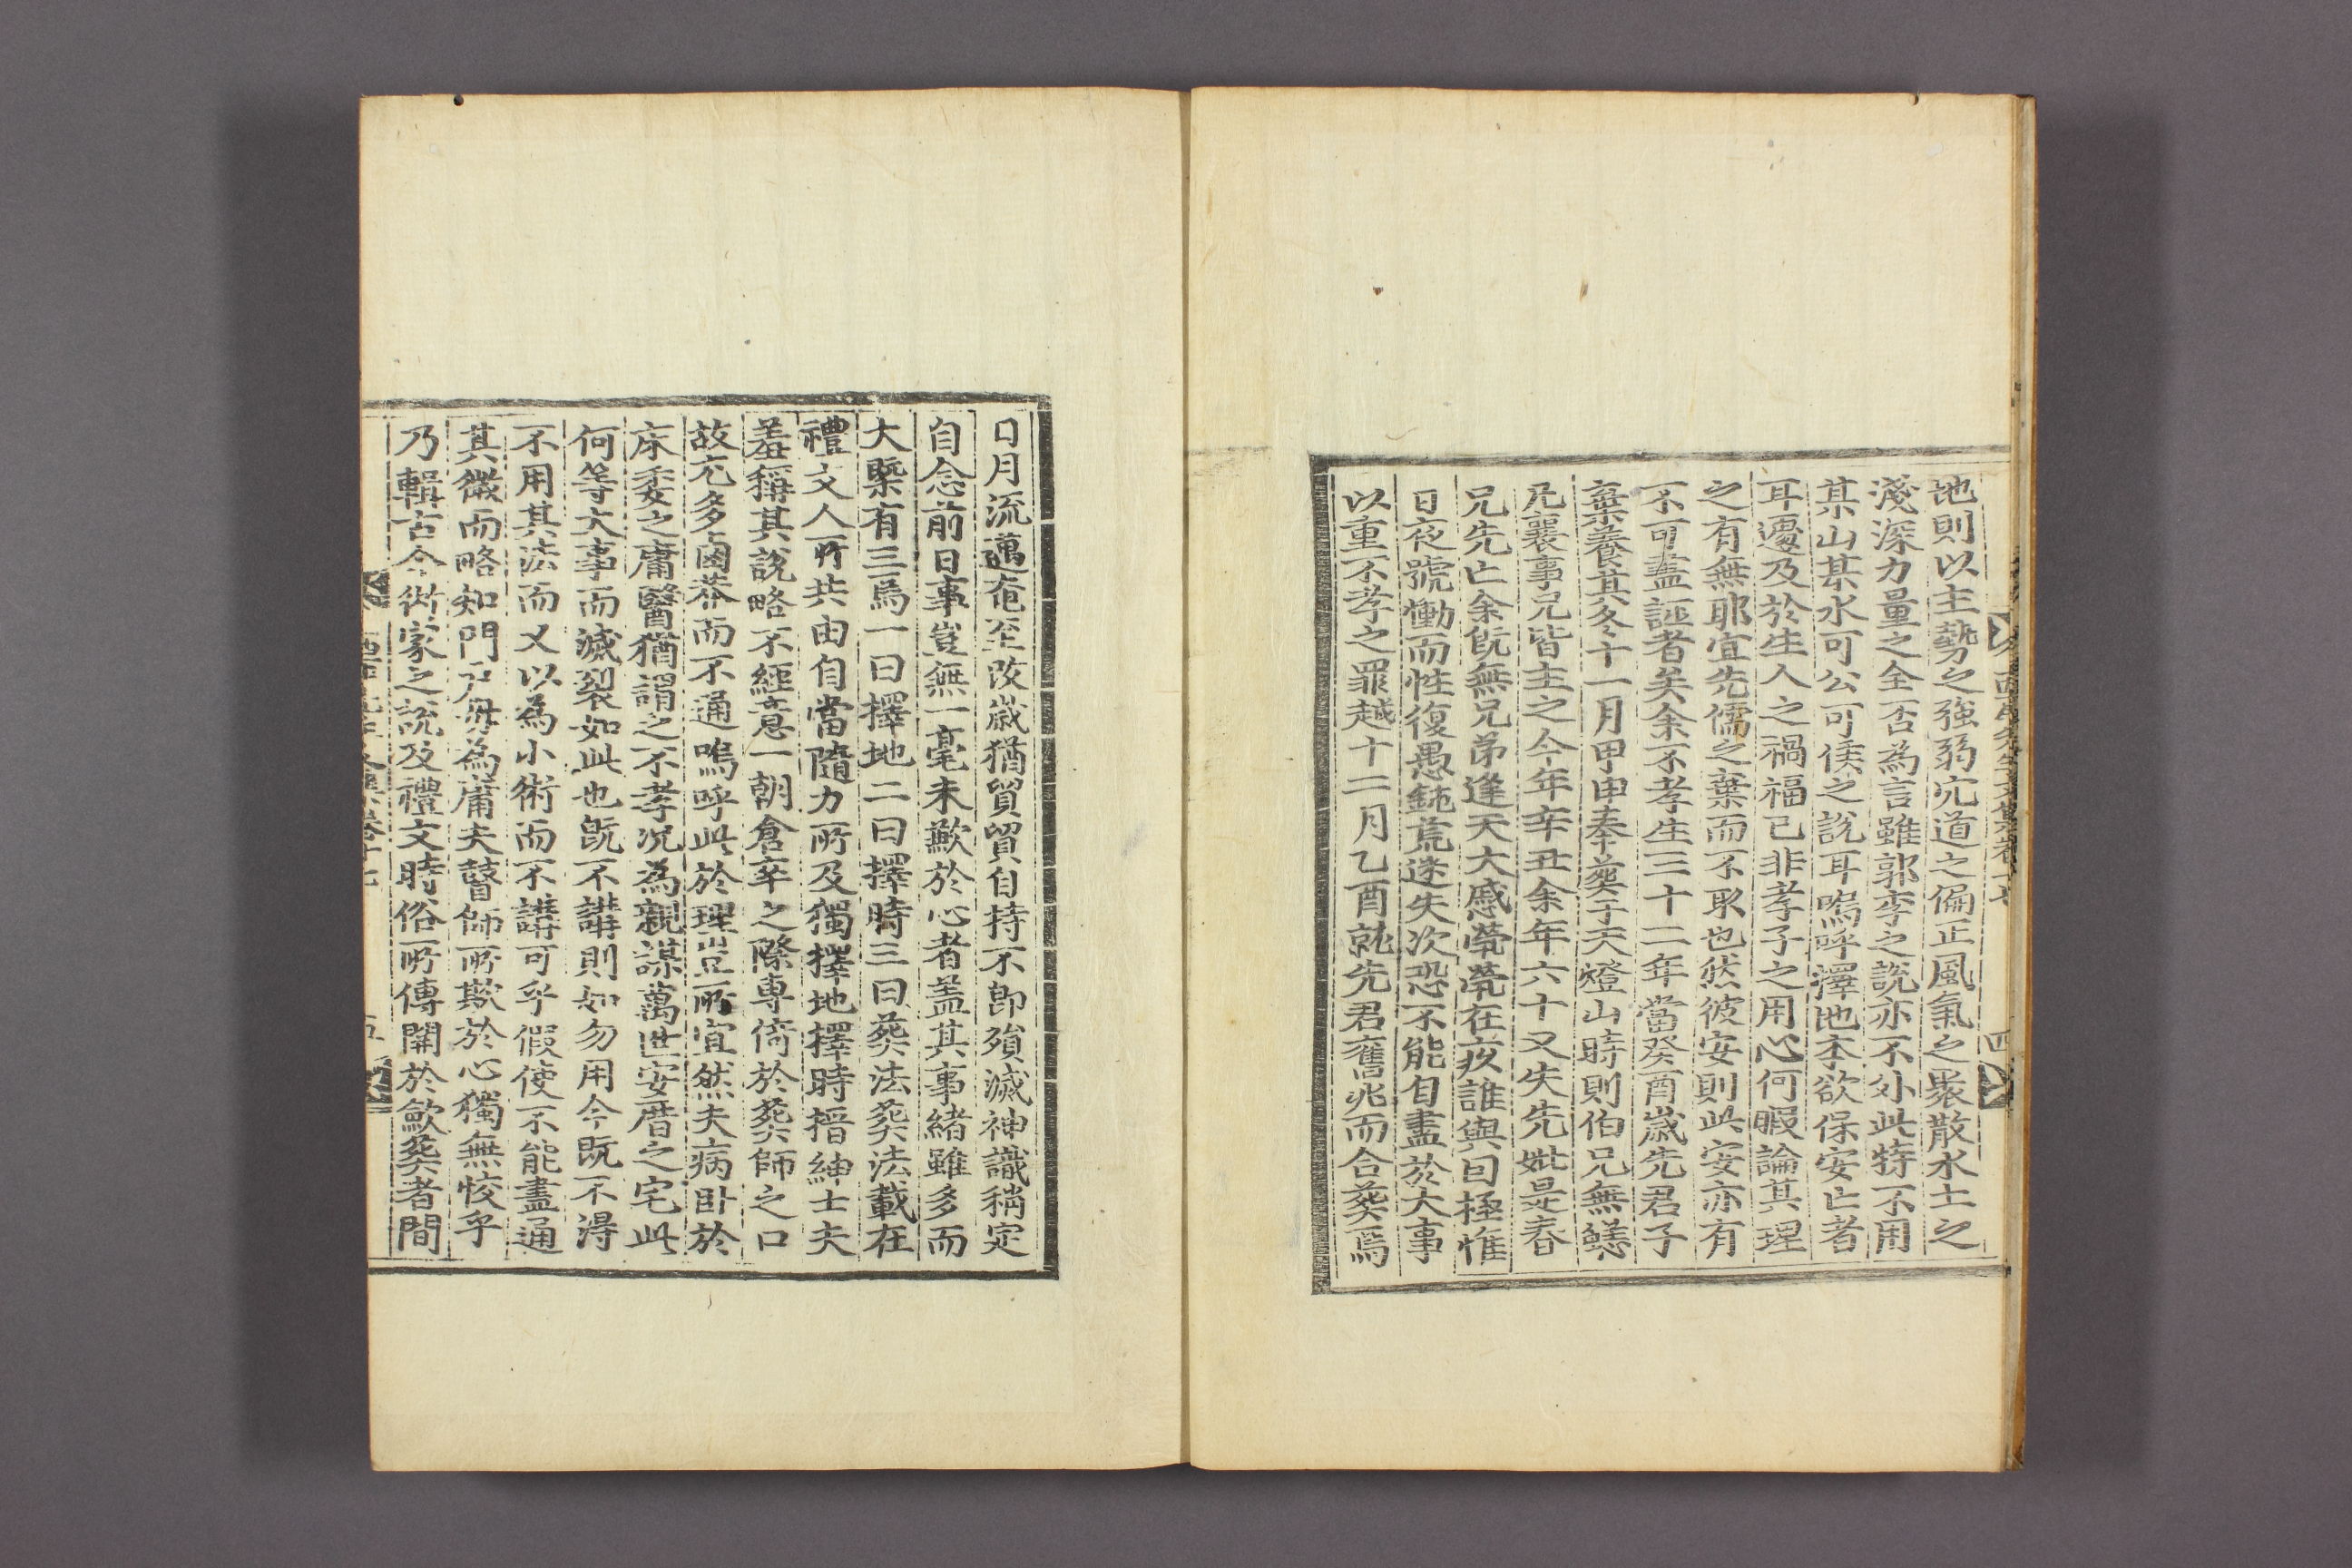 地則以主勢之強弱穴道之偏正風氣之聚散水土之
淺深力量之全否為言雖郭李之說亦不外此特不用
某山某水可公可侯之說耳嗚呼澤地本欲保安亡者
耳遷及於生人之禍福已非孝子之用心何暇論其理
之有無耶宜先儒之棄而不取也然彼安則此安亦有
不可盡誣者矣余不孝生三十二年當癸酉歲先君子
棄養其冬十一月甲申奉葬于天燈山時則伯兄無恙
凡襄事兄皆主之今年辛丑余年六十又失先妣是春
兄先亡余旣無兄弟逢天大慼煢煢在疚誰與曰極惟
日夜號慟而性復愚鈍荒迷失次恐不能自盡於大事
以重不孝之罪越十二月乙酉就先君舊兆而合葬焉
西厓先生文集卷十七
四
日月流邁奄至改歲猶貿貿自持不卽殞滅神識稍定
自念前日事豈無一毫未歉於心者盖其事緖雖多而
大槩有三焉一曰擇地二曰擇時三曰葬法葬法載在
禮文人所共由自當隨力所及獨擇地擇時搢紳士夫
羞稱其說略不經意一朝倉卒之際專倚於葬師之口
故尤多鹵莽而不通嗚呼此於理豈所宜然夫病卧於
床委之庸醫猶謂之不孝况為親謀萬世安厝之宅此
何等大事而滅裂如此也旣不講則如勿用今既不得
不用其法而又以為小術而不講可乎假使不能盡通
其微而略知門戶毋為庸夫瞽師所欺於心獨無恔乎
乃輯古今術家之說及禮文時俗所傳關於斂葬者間
西厓先生文集卷十七
五